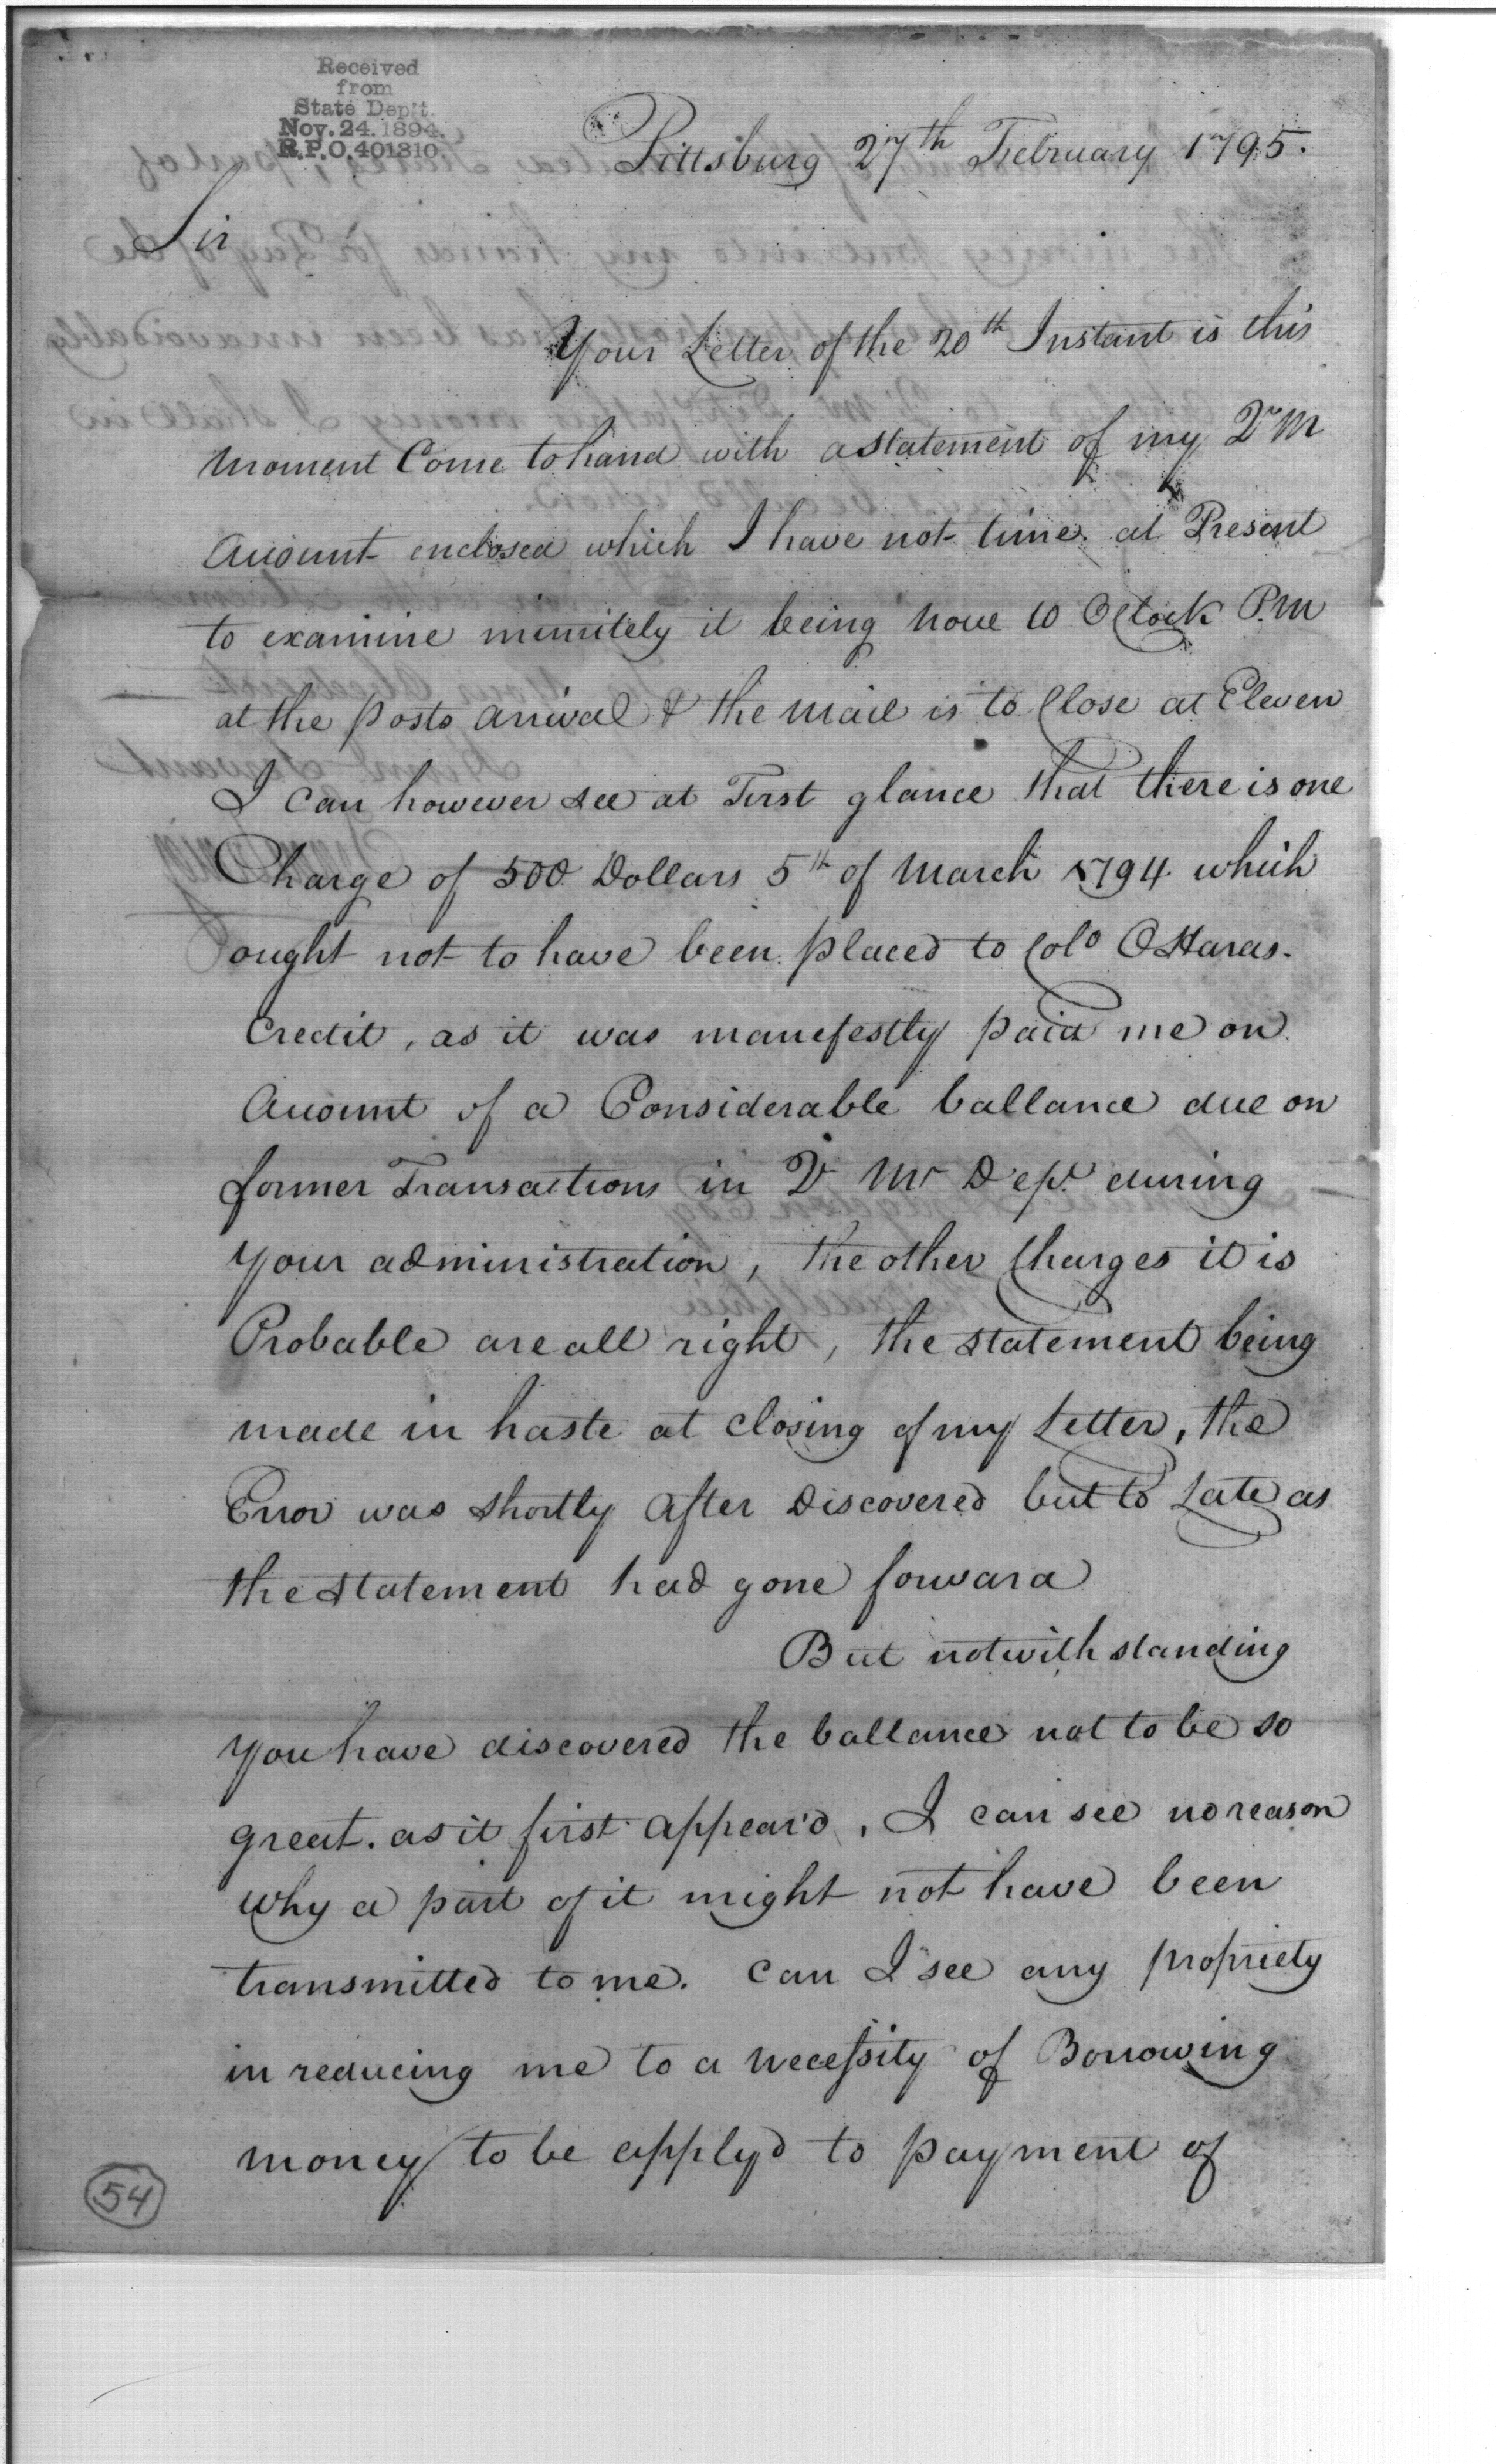 Received
from
State Dep't.
Nov. 24. 1894.
R.P.O. 401310.
Pittsburg 27th February 1795.
Sir
Your Letter of the 20th Instant is this
moment Come to hand with a statement of my Qr M
Account enclosed which I have not time at Present
to examine minutely it being now 10 OClock P.M
at the posts arrival & the mail is to Close at Eleven
I can however see at First glance that there is one
Charge of 500 Dollars 5th of March 1794 which
ought not to have been placed to Colo OHaras.
Credit, as it was manefestly paid me on
Account of a Considerable ballance due on
former Transactions in Qr Mr Dept during
your administration, the other Charges it is
Probable are all right, the statement being
made in haste at closing of my Letter, the
Error was shortly after Discovered but to Late as
the statement had gone forward
But notwithstanding
you have discovered the ballance not to be so
great. as it first appear'd, I can see no reason
why a part of it might not have been
transmitted to me. Can I see any propriety
in reducing me to a necessity of Borrowing
money to be apply'd to payment of
54